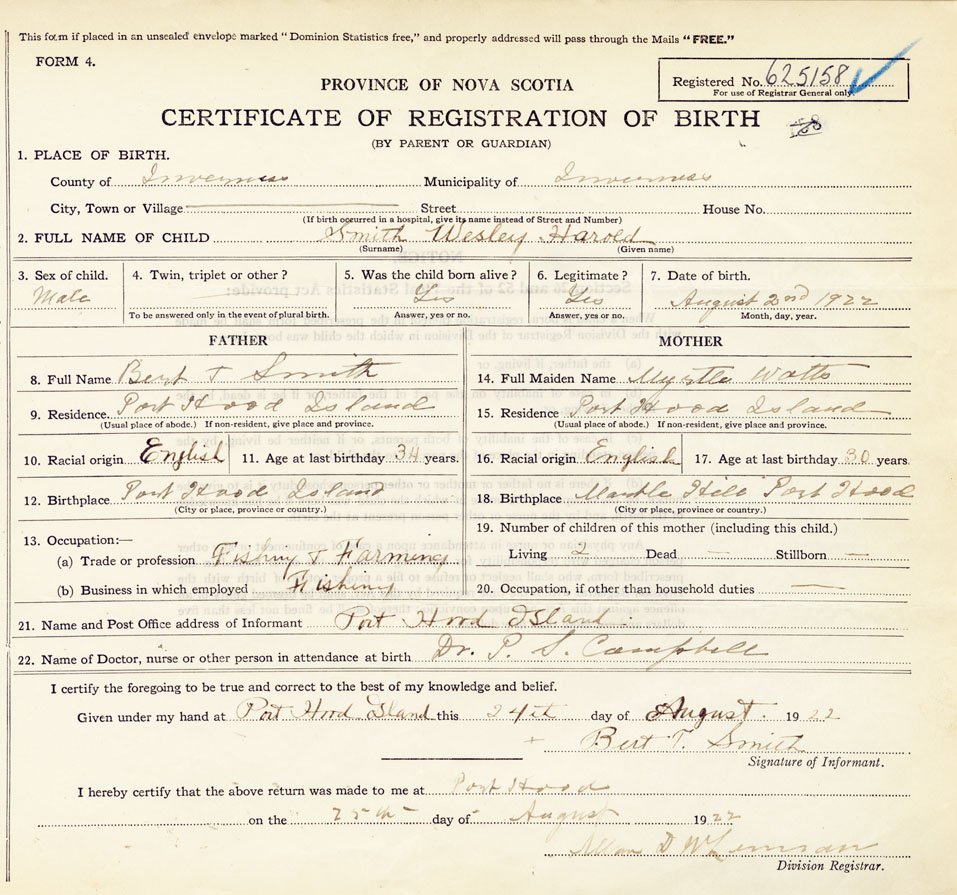 This form if placed in an unsealed envelope marked "Dominion Statistics free," and properly addressed will pass through the Mails "FREE."
FORM 4.
Registered No. 625158
For use of Registrar General only.
PROVINCE OF NOVA SCOTIA
CERTIFICATE OF REGISTRATION OF BIRTH
(BY PARENT OR GUARDIAN)
1. PLACE OF BIRTH.
County of Inverness Municipality of Inverness
City, Town or Village Street House No.
(If birth occurred in a hospital, give its name instead of Street and Number)
2. FULL NAME OF CHILD Smith Wesley Harold
(Surname) (Given name)
3. Sex of child. 4. Twin, triplet or other? 5. Was the child born alive? 6. Legitimate? 7. Date of birth.
Male Yes Yes August 2nd 1922
To be answered only in the event of plural birth. Answer, yes or no. Answer, yes or no. Month, day, year.
FATHER MOTHER
8. Full Name Bert T Smith 14. Full Maiden Name Myrtle Watts
9. Residence. Port Hood Island 15. Residence Port Hood Island
(Usual place of abode.) If non-resident, give place and province. (Usual place of abode.) If non-resident, give place and province.
10. Racial origin English 11. Age at last birthday 34 years. 16. Racial origin English 17. Age at last birthday 30 years.
12. Birthplace Port Hood Island 18. Birthplace Hill Port Hood
(City or place, province or country.) (City or place, province or country.)
13. Occupation:— 19. Number of children of this mother (including this child.)
(a) Trade or profession Fishing & Farming Living 2 Dead — Stillborn —
(b) Business in which employed Fishing 20. Occupation, if other than household duties —
21. Name and Post Office address of Informant Port Hood Island.
22. Name of Doctor, nurse or other person in attendance at birth Dr. P. S. Campbell
I certify the foregoing to be true and correct to the best of my knowledge and belief.
Given under my hand at Port Hood Island this 24th day of August. 1922
Bert T. Smith
Signature of Informant.
I hereby certify that the above return was made to me at Port Hood
on the 25th day of August 1922
D
Division Registrar.